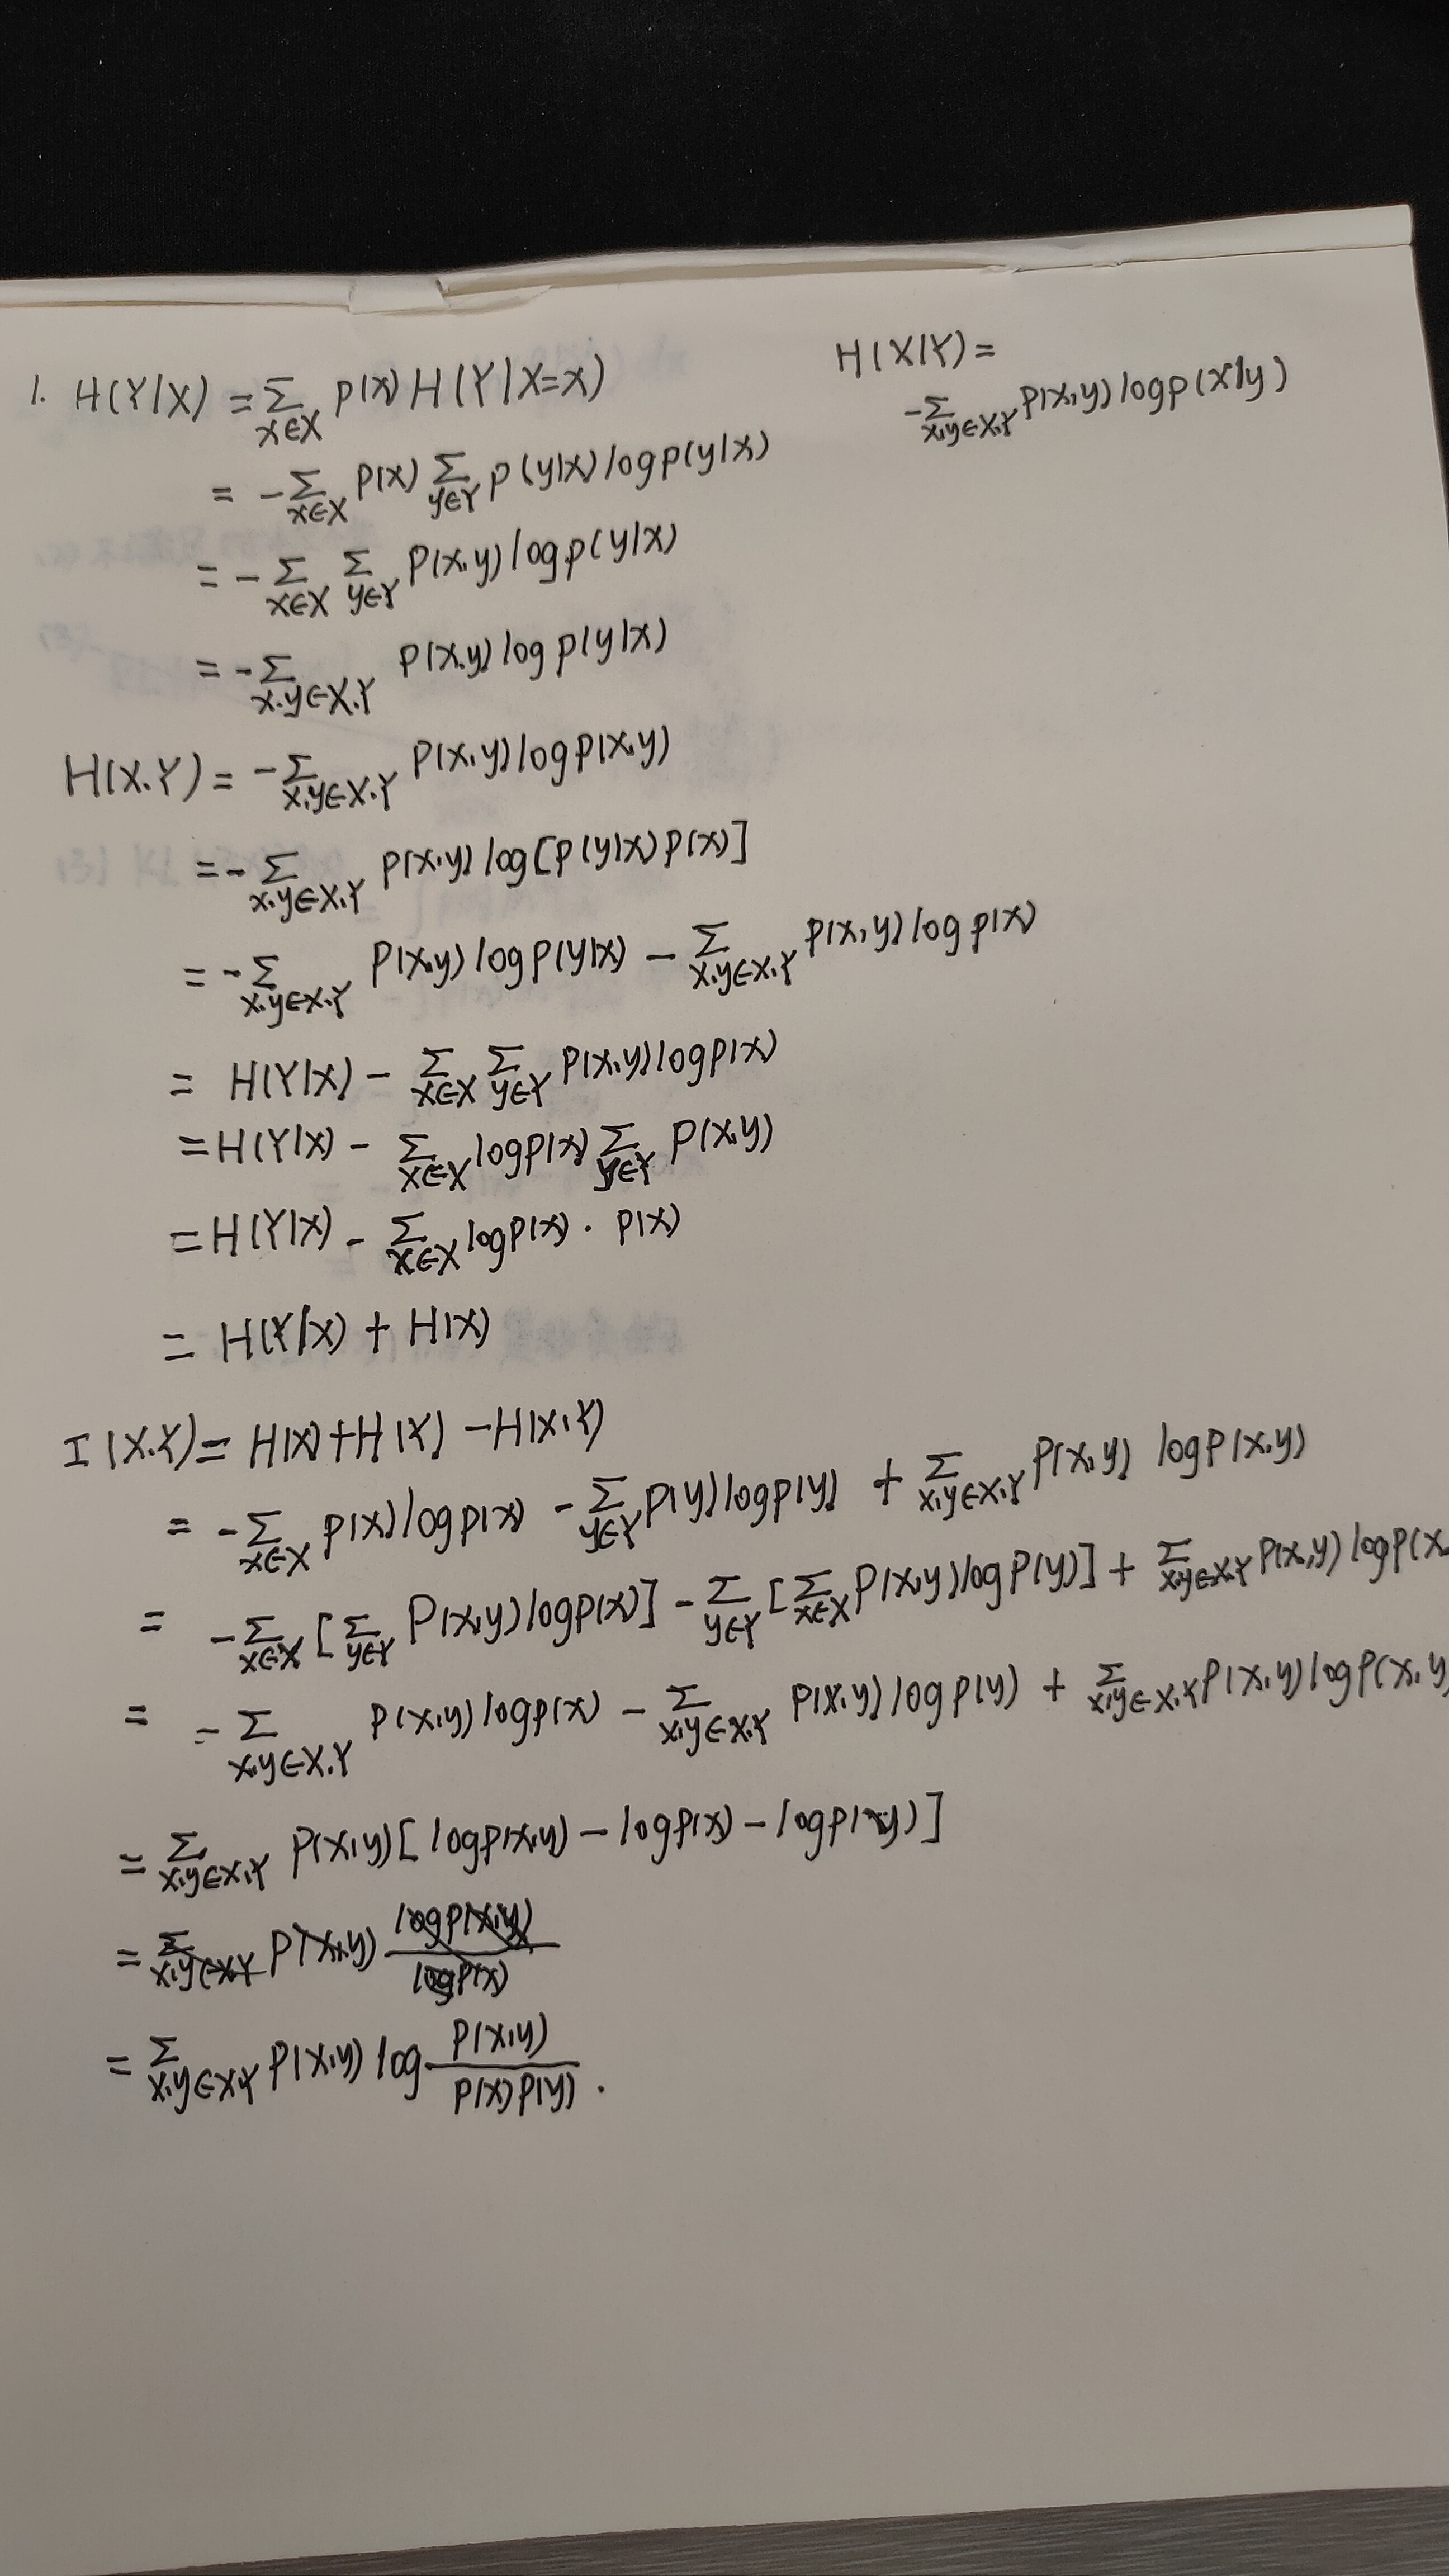 1. H(Y|X) = Σ_{x∈X} p(x) H(Y|X=x)
H(X|Y) =
-Σ_{x,y∈X,Y} p(x,y) log p(x|y)
= -Σ_{x∈X} p(x) Σ_{y∈Y} p(y|x) log p(y|x)
= -Σ_{x∈X} Σ_{y∈Y} p(x,y) log p(y|x)
= -Σ_{x,y∈X,Y} p(x,y) log p(y|x)
H(X,Y) = -Σ_{x,y∈X,Y} p(x,y) log p(x,y)
= -Σ_{x,y∈X,Y} p(x,y) log[p(y|x)p(x)]
= -Σ_{x,y∈X,Y} p(x,y) log p(y|x) - Σ_{x,y∈X,Y} p(x,y) log p(x)
= H(Y|X) - Σ_{x∈X} Σ_{y∈Y} p(x,y) log p(x)
= H(Y|X) - Σ_{x∈X} log p(x) Σ_{y∈Y} p(x,y)
= H(Y|X) - Σ_{x∈X} log p(x) · p(x)
= H(Y|X) + H(X)
I(X,Y) = H(X) + H(Y) - H(X,Y)
= -Σ_{x∈X} p(x) log p(x) - Σ_{y∈Y} p(y) log p(y) + Σ_{x,y∈X,Y} p(x,y) log p(x,y)
= -Σ_{x∈X} [Σ_{y∈Y} p(x,y) log p(x)] - Σ_{y∈Y} [Σ_{x∈X} p(x,y) log p(y)] + Σ_{x,y∈X,Y} p(x,y) log p(x
= -Σ_{x,y∈X,Y} p(x,y) log p(x) - Σ_{x,y∈X,Y} p(x,y) log p(y) + Σ_{x,y∈X,Y} p(x,y) log p(x,y
= Σ_{x,y∈X,Y} p(x,y) [log p(x,y) - log p(x) - log p(y)]
= Σ_{x,y∈X,Y} p(x,y) log p(x,y) / log p(x)
= Σ_{x,y∈X,Y} p(x,y) log p(x,y) / p(x)p(y) .